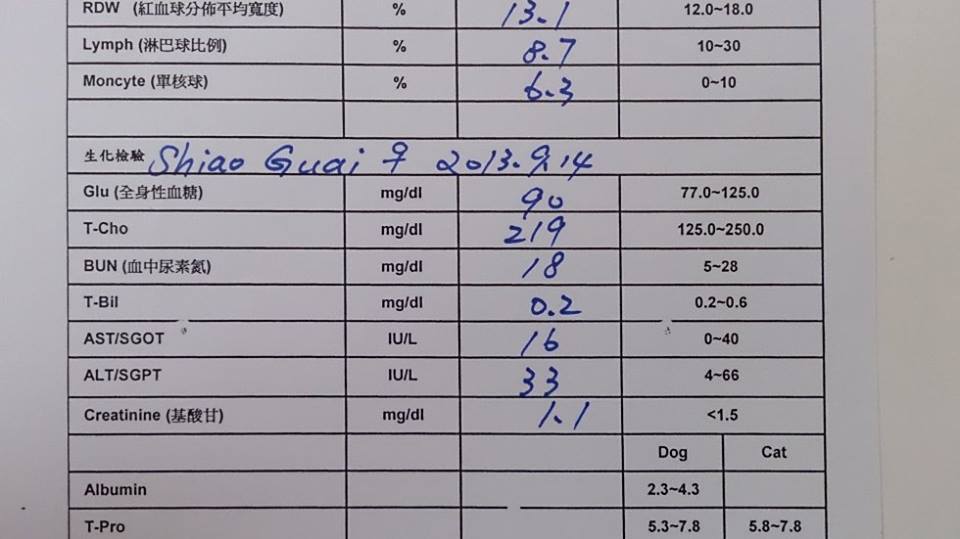 RDW (紅血球分佈平均寬度) % 13.1 12.0~18.0
Lymph (淋巴球比例) % 8.7 10~30
Moncyte (單核球) % 6.3 0~10
生化檢驗 Shiao Guai ♀ 2013.9.14
Glu (全身性血糖) mg/dl 90 77.0~125.0
T-Cho mg/dl 219 125.0~250.0
BUN (血中尿素氮) mg/dl 18 5~28
T-Bil mg/dl 0.2 0.2~0.6
AST/SGOT IU/L 16 0~40
ALT/SGPT IU/L 33 4~66
Creatinine (基酸甘) mg/dl 1.1 <1.5
Dog Cat
Albumin 2.3~4.3
T-Pro 5.3~7.8 5.8~7.8